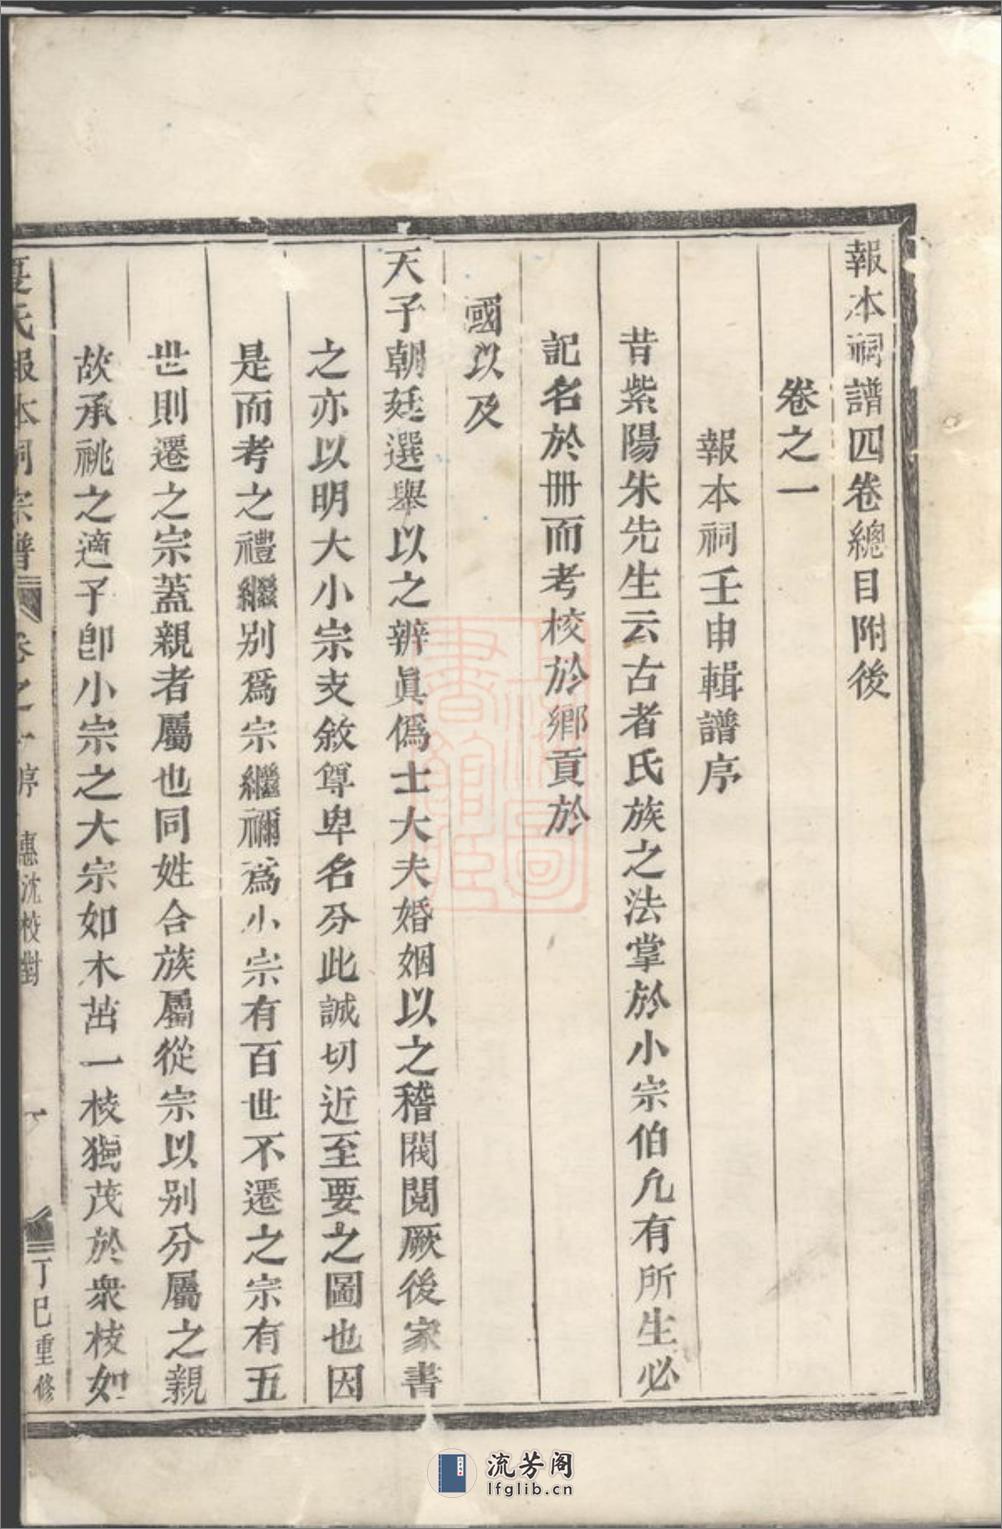 報本祠譜四卷總目附後
卷之一
報本祠壬申輯譜序
昔紫陽朱先生云古者氏族之法掌於小宗伯凡有所生必
記名於冊而考校於鄉貢於
國以及
天子朝廷選舉以之辨眞僞士大夫婚姻以之稽閥閱厥後家書
之亦以明大小宗支敘尊卑名分此誠切近至要之圖也因
是而考之禮繼别爲宗繼禰爲小宗有百世不遷之宗有五
世則遷之宗蓋親者屬也同姓合族屬從宗以别分屬之親
故承祧之適子卽小宗之大宗如木茁一枝獨茂於衆枝如
夏氏報本祠宗譜 卷之一 序 惠沈校對 一 丁巳重修
上海圖書館藏
流芳阁
lfglib.cn